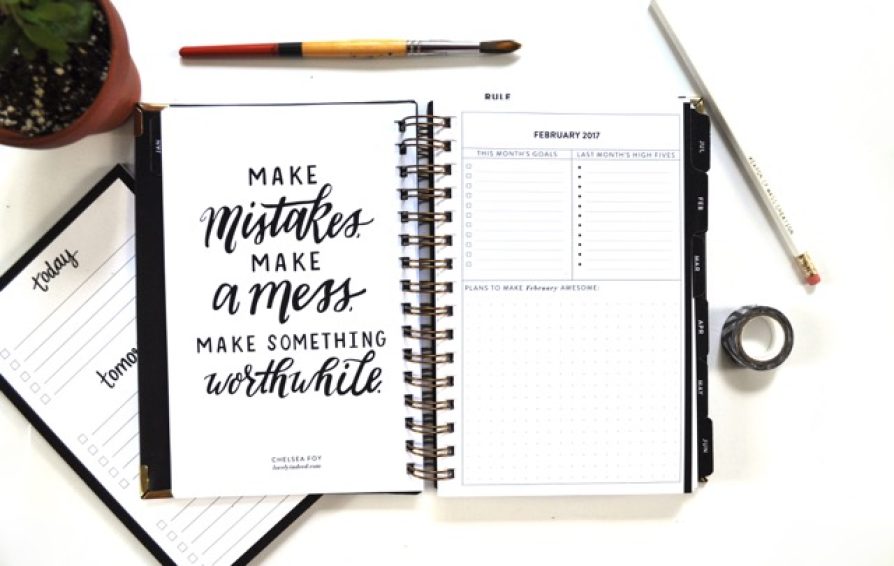 MAKE
mistakes.
MAKE
a mess.
MAKE SOMETHING
worthwhile.
CHELSEA FOY
lovelyindeed.com
RULE
FEBRUARY 2017
THIS MONTH'S GOALS
LAST MONTH'S HIGH FIVES
PLANS TO MAKE February AWESOME:
JUL
FEB
MAR
APR
MAY
JUN
today
tomo